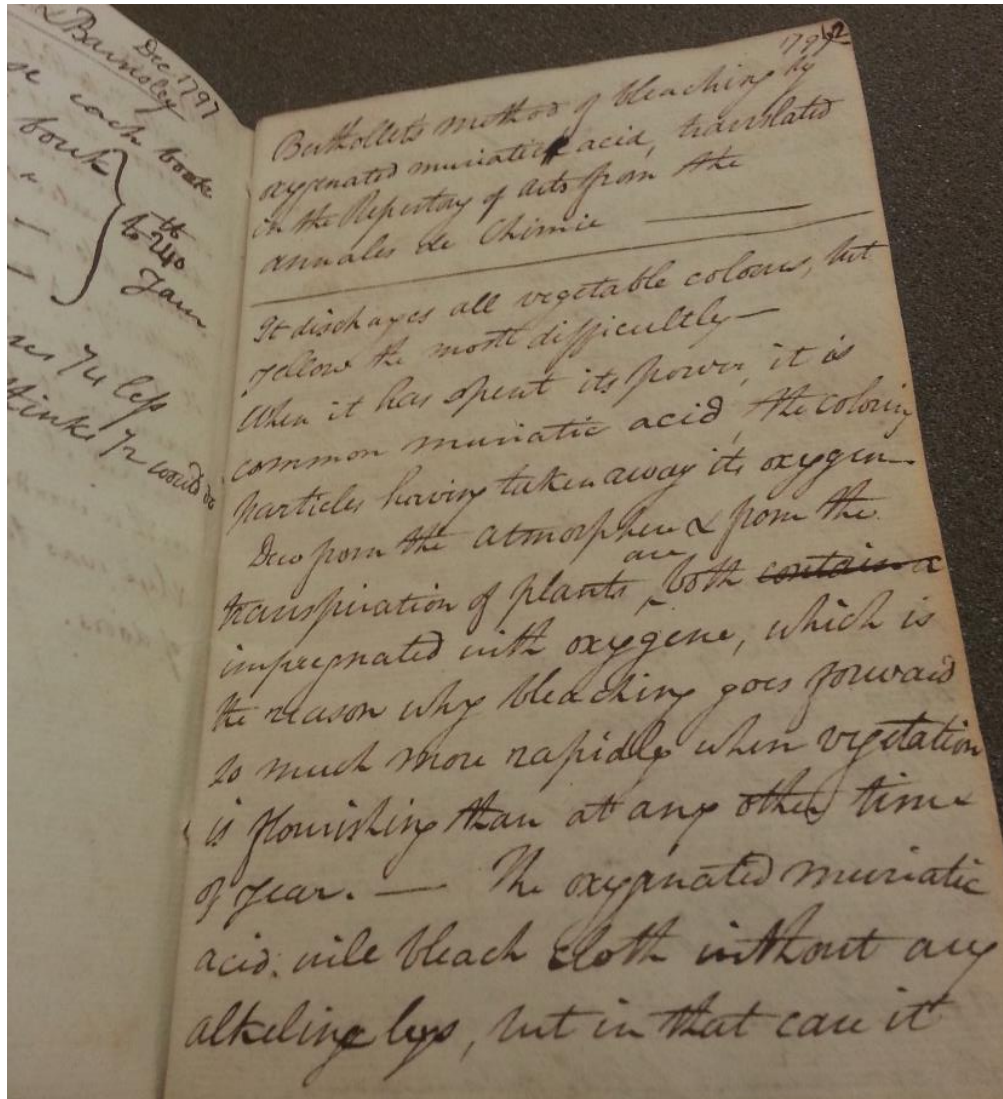 & Barnsley
Dec. 1797
each bouk
bouk
to 24th
Jany
less
think 1/2 would do
1797
62
Berthollets method of bleaching by
oxygenated muriatic acid, translated
in the Repertory of arts from the
annales de Chimie
It discharges all vegetable colours, but
yellow the most difficultly —
When it has spent its power, it is
common muriatic acid, the coloring
particles having taken away its oxygen —
Dew from the atmosphere & from the
transpiration of plants are both contain a
impregnated with oxygene, which is
the reason why bleaching goes forward
so much more rapidly when vegetation
is flourishing than at any other time
of year. — The oxygenated muriatic
acid, will bleach cloth without any
alkeline leys, but in that case it